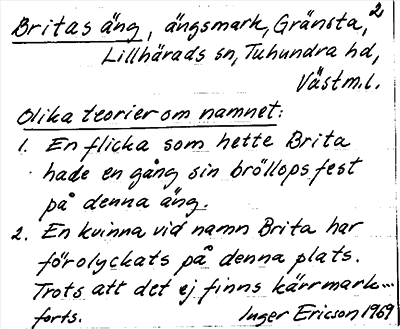 Britas äng, ängsmark, Gränsta, 2
Lillhärads sn, Tuhundra hd,
Västm.l.
Olika teorier om namnet:
1. En flicka som hette Brita
hade en gång sin bröllopsfest
på denna äng.
2. En kvinna vid namn Brita har
förolyckats på denna plats.
Trots att det ej finns kärrmark...
forts. Inger Ericson 1969